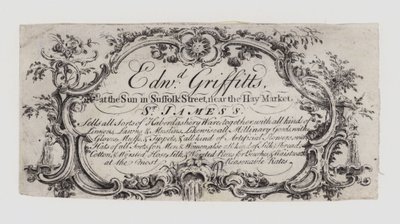 Edw.d Griffitts,
at the Sun in Suffolk Street, near the Hay Market,
St. JAMES'S.
Sells all Sorts of Haberdashery Ware, together with all kind of
Linnens, Lawns & Muslins, Likewise all Millinary Goods, with
Gloves, Muffs, & Tippets, & all kind of Artificial Flowers, with
Hats of all Sorts for Men & Women, also all kind of Silk, Thread,
Cotton, & Worsted Hose, Silk, & Worsted for Breeches & Waistcoats
at the most Reasonable Rates.